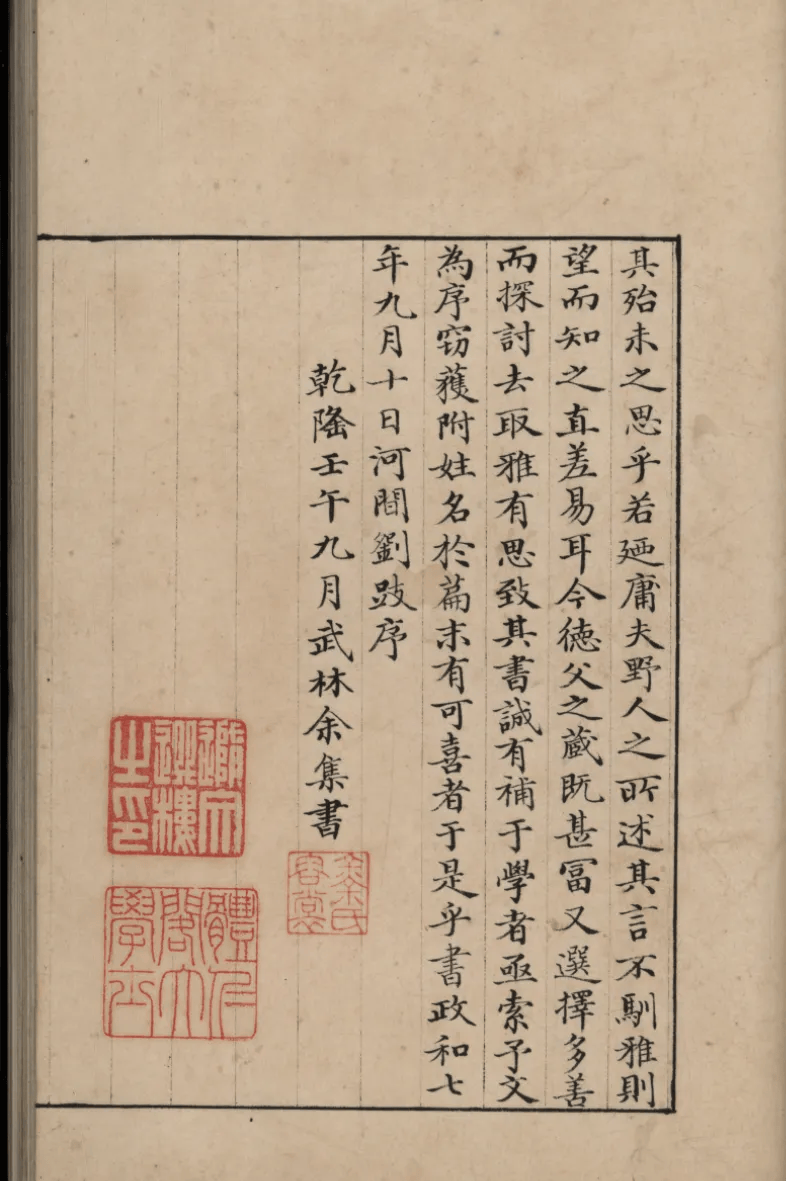 其殆未之思乎若廼庸夫野人之所述其言不馴雅則
望而知之直差易耳今徳父之蔵既甚冨又選擇多善
而探討去取雅有思致其書誠有補于學者亟索予文
為序窃獲附姓名於篇末有可喜者于是乎書政和七
年九月十日河間劉跂序
乾隆壬午九月武林余集書
隋文選樓之印
體仁閣大學士